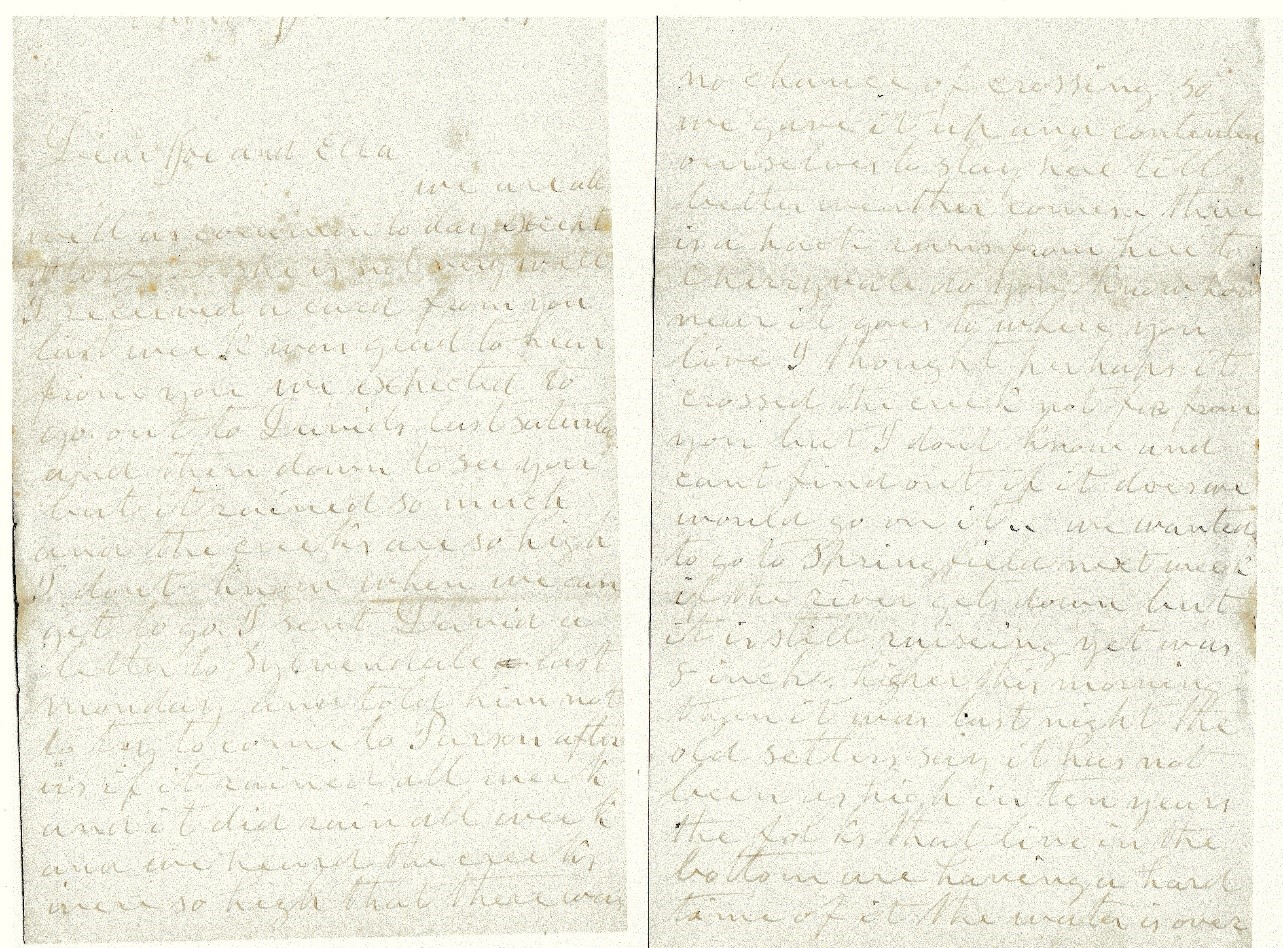 Dear Joe and Ella
we are all
well as common to day except
she is not very well
I received a card from you
last week was glad to hear
from you we expected to
go out to Davids last saturday
and then down to see you
but it rained so much
and the creeks are so high
I dont know when we can
get to go I sent David a
letter to last
monday and told him not
to try to come to Parson after
us if it rained all week
and it did rain all week
and we heard the creeks
were so high that there was
no chance of crossing so
we gave it up and contented
ourselves to stay here till
better weather comes there
is a hack runs from here to
Cherryvale do you know how
near it goes to where you
live I thought perhaps it
crossed the creek not far from
you but I dont know and
cant find out if it does we
would go on it we wanted
to go to Springfield next week
if the river gets down but
it is still raiseing yet was
5 inch higher this morning
then it was last night the
old settlers say it has not
been as high in ten years
the folks that live in the
bottom are having a hard
time of it the water is over